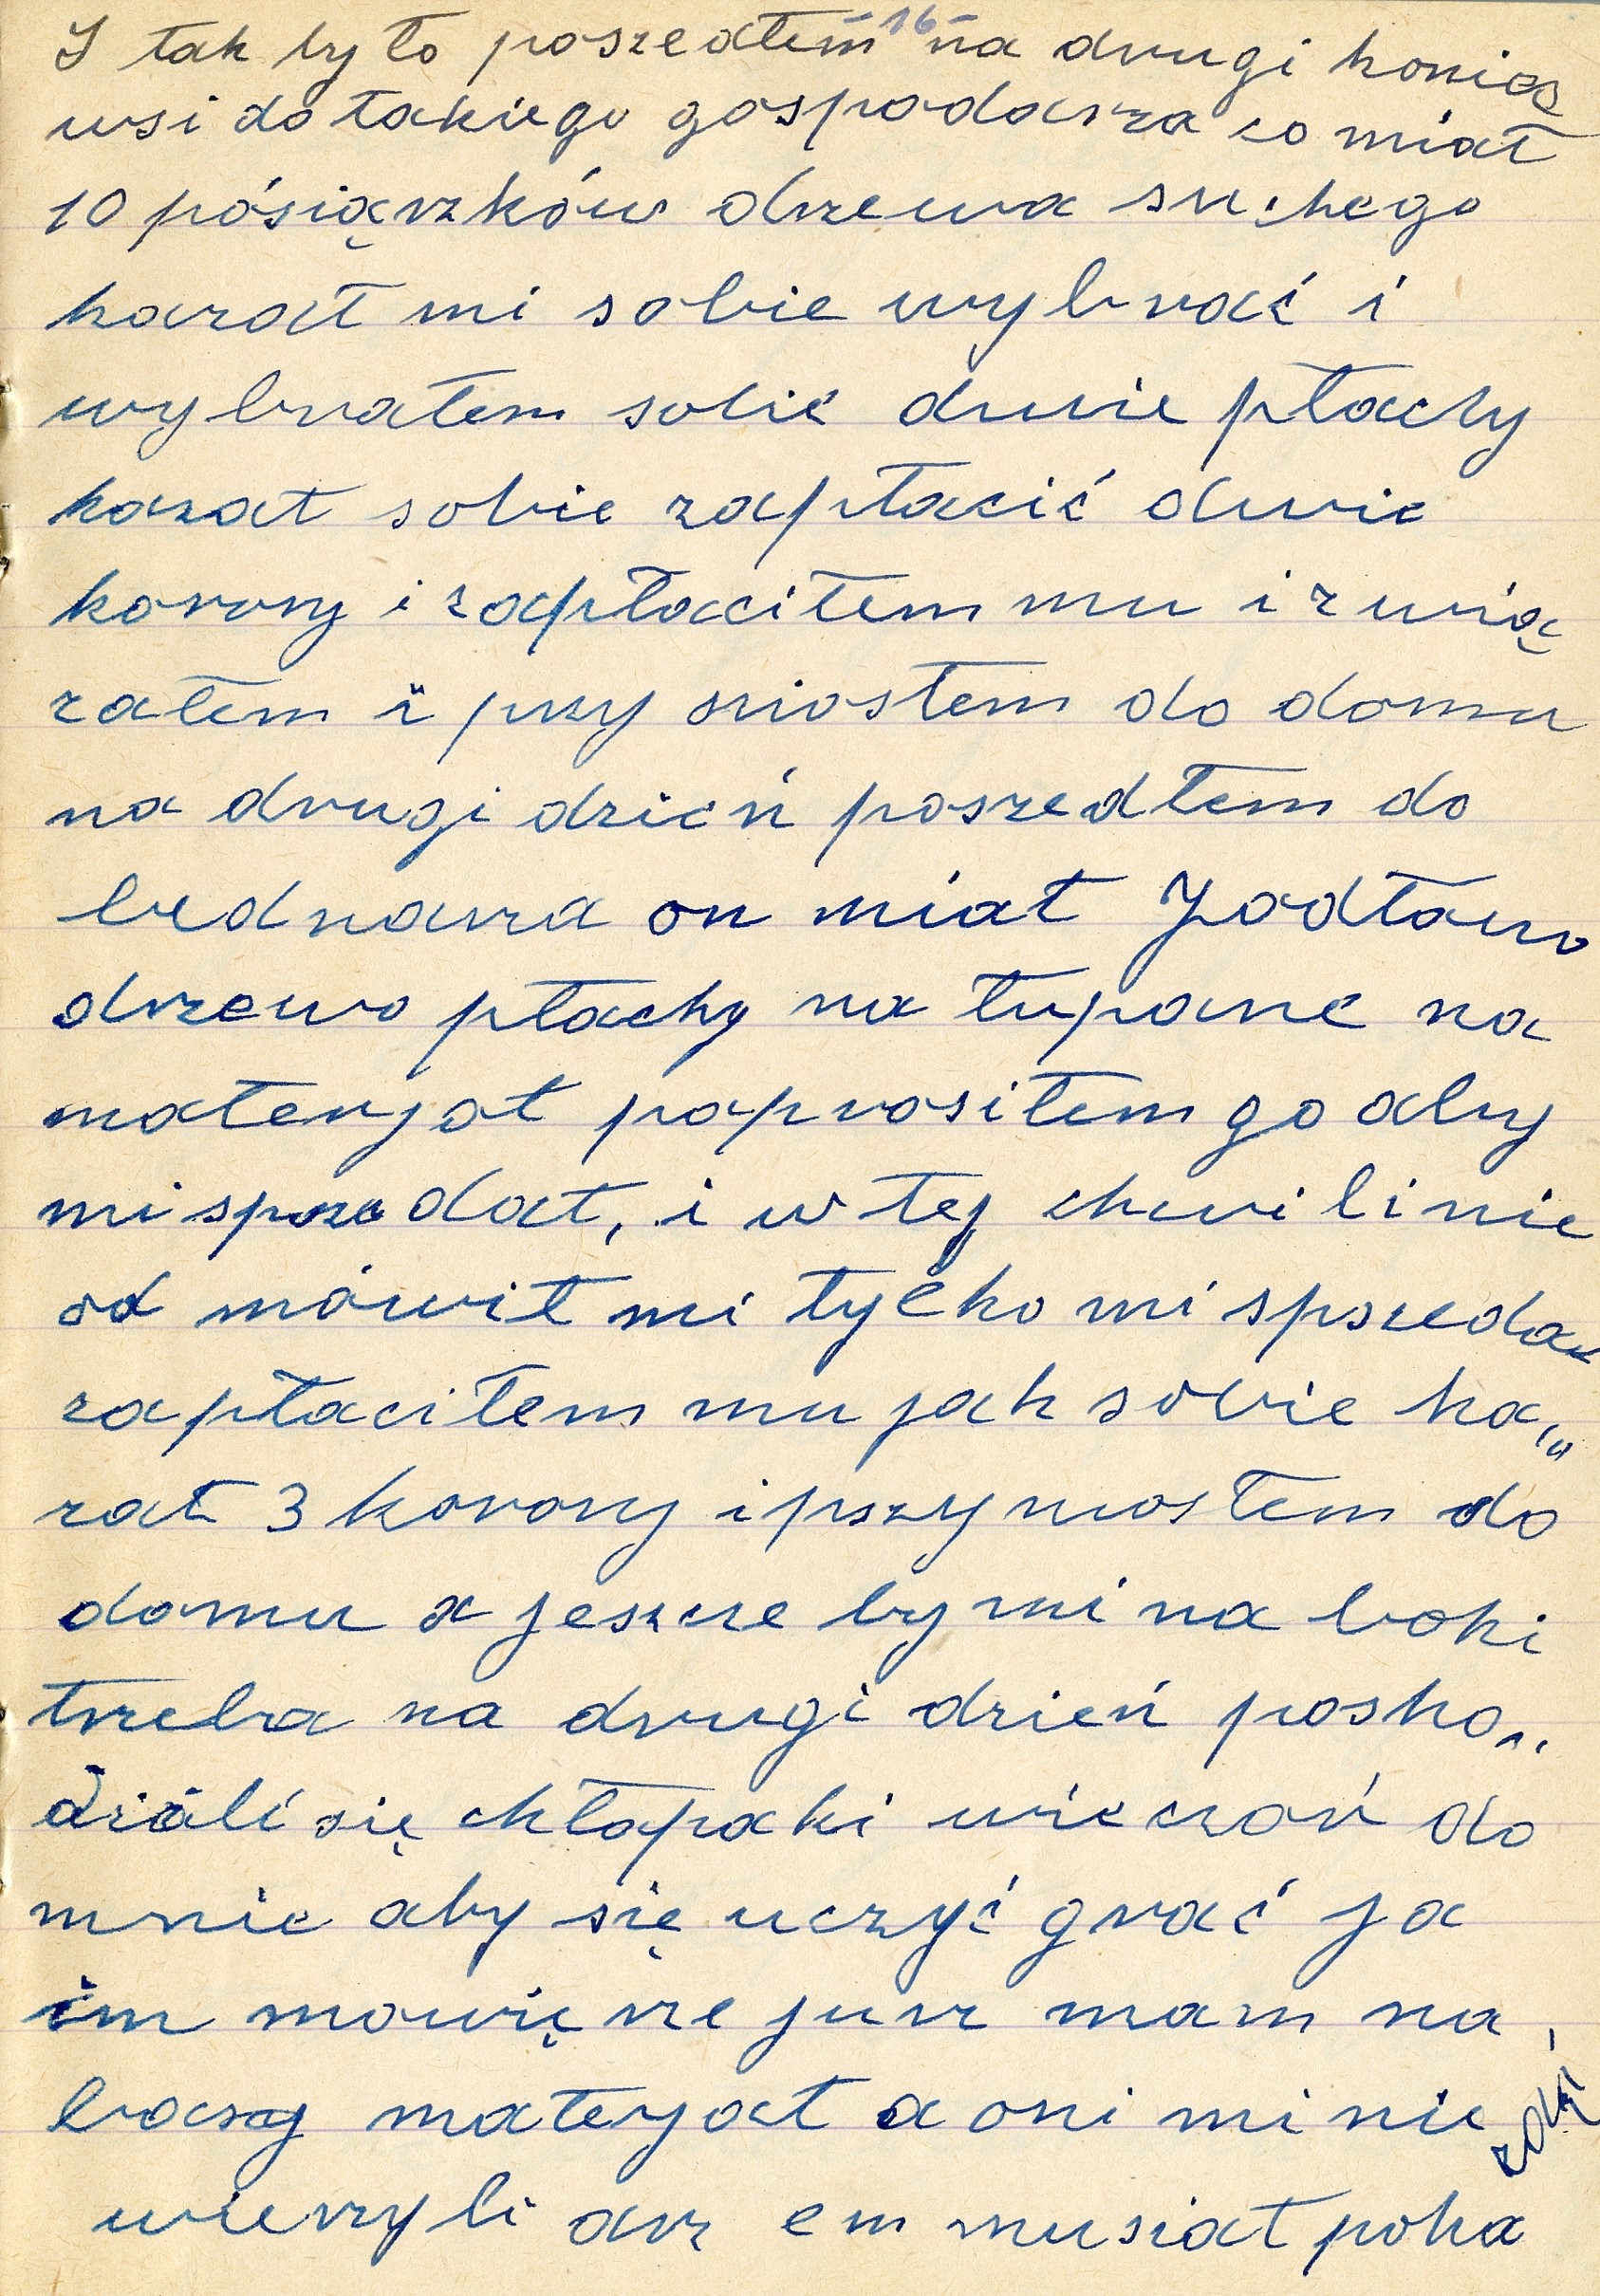 -16-
I tak było poszedłem na drugi koniec
wsi do takiego gospodarza co miał
10 pósiążków drzewa suchego
kazał mi sobie wybrać i
wybrałem sobie dwie płachy
kazał sobie zapłacić dwie
korony i zapłaciłem mu i zwią
załem i przy niosłem do domu
na drugi dzień poszedłem do
bednarza on miał Jodłowo
drzewo płachy na łupane na
materjał poprosiłem go aby
mi sprzedał, i w tej chwili nie
od mówił mi tylko mi sprzedał
zapłaciłem mu jak sobie ka„
zał 3 korony i pszyniosłem do
domu a jeszcze by mi na boki
trzeba na drugi dzień poscho„
dziáli się chłopaki wieczór do
mnie aby się uczyć grać ja
im mowię rze jurz mam na
basy materjał a oni mi nie
wierzyli arz em musiał poka
zać